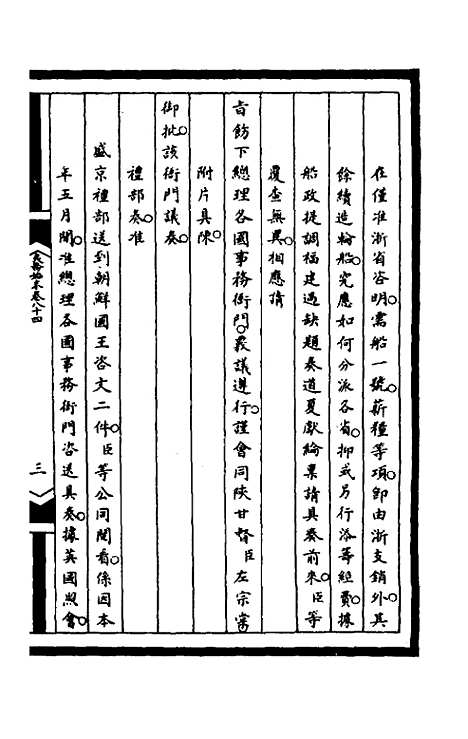 在僅准浙省咨明。需船一號。薪糧等項。卽由浙支銷外。其
餘續造輪船。究應如何分派各省。抑或另行添籌經費。據
船政提調福建遇缺題奏道夏獻綸稟請具奏前來。臣等
覆查無異。相應請
旨飭下總理各國事務衙門。覈議遵行。謹會同陝甘督臣左宗棠
附片具陳。
御批。該衙門議奏。
禮部奏。准
盛京禮部送到朝鮮國王咨文二件。臣等公同閱看。係因本
年五月閒。准總理各國事務衙門咨送具奏。據英國照會。
夷務始末卷八十四
三